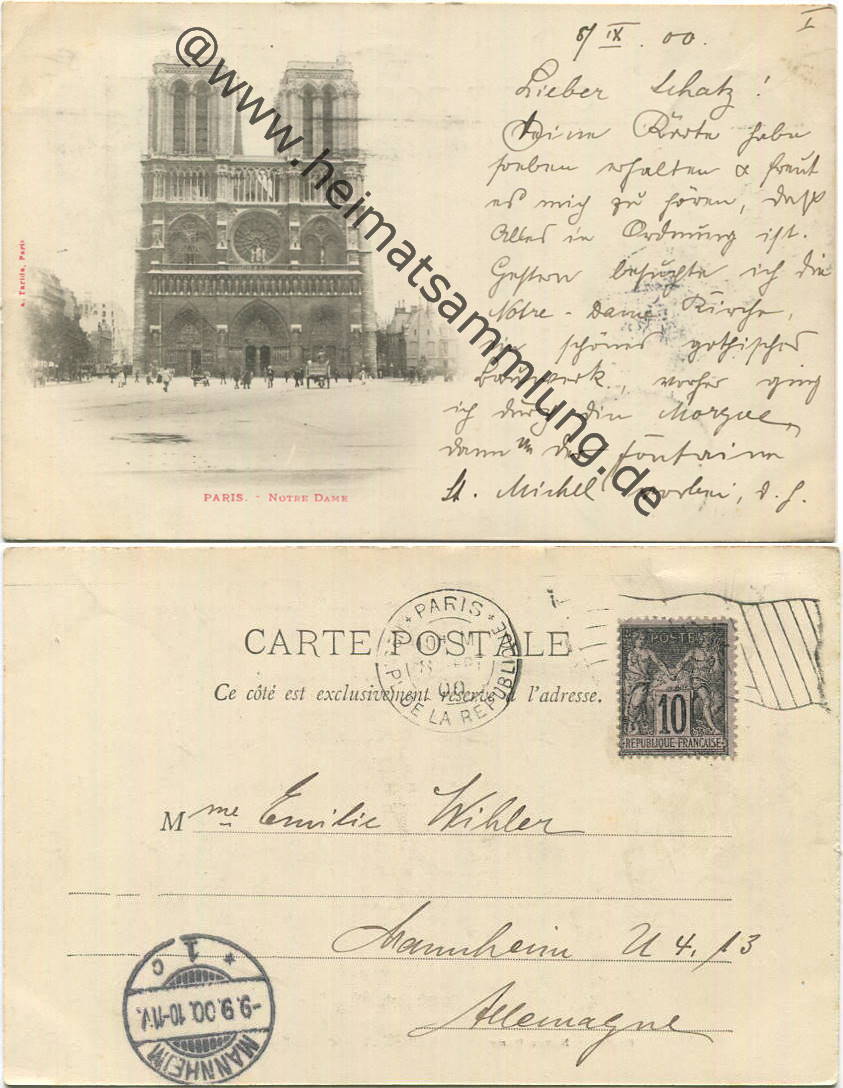 I
8/IX. 00.
Lieber Schatz!
Deine Karte habe
soeben erhalten & freut
es mich zu hören, daß
Alles in Ordnung ist.
Gestern besuchte ich die
Notre-Dame Kirche,
ein schönes gothisches
Bauwerk, vorher ging
ich durch die Morgue,
dann an der Fontaine
St. Michel vorbei, d. h.
A. Taride, Paris
PARIS. - NOTRE DAME
@www.heimatsammlung.de
CARTE POSTALE
Ce côté est exclusivement réservé à l'adresse.
PARIS
PL. DE LA REPUBLIQUE
00
POSTES
10
REPUBLIQUE FRANÇAISE
Mme Emilie Wihler
Mannheim U 4. 13
Allemagne
MANNHEIM
-9.9.00.10-11V.
* 1 c